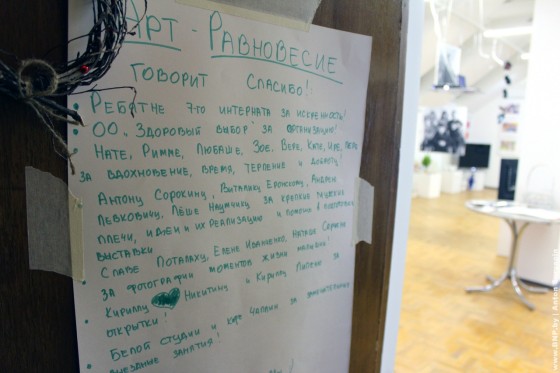 Арт - Равновесие
говорит спасибо!
• Ребятне 7-го интерната за искренность!
• ОО „Здоровый выбор" за организацию!
• Нате, Римме, Любаше, Зое, Вере, Кате, Ире,
за вдохновение, время, терпение и доброту!
• Антону Сорокину, Виталику Андрею
Левковичу, Лёше Наумчику за крепкие мужские
плечи, идеи и их реализацию и помощь в подготовке
выставки
• Славе Поталаху, Елене Иваненко, Наталье
за фотографии моментов жизни малышни!
• Кириллу Никитину и Кириллу за
открытки!
• Белой студии и кафе за
выездные занятия!